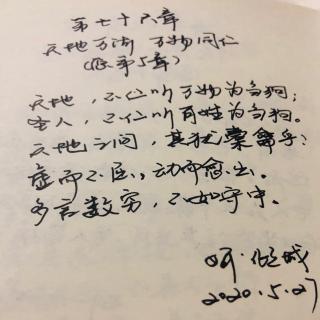 第七十六章
天地万物 万物同仁
(原第5章)
天地,不仁以万物为刍狗;
圣人,不仁以百姓为刍狗。
天地之间,其犹橐龠乎?
虚而不屈,动而愈出。
多言数穷,不如守中。
倾城
2020.5.27